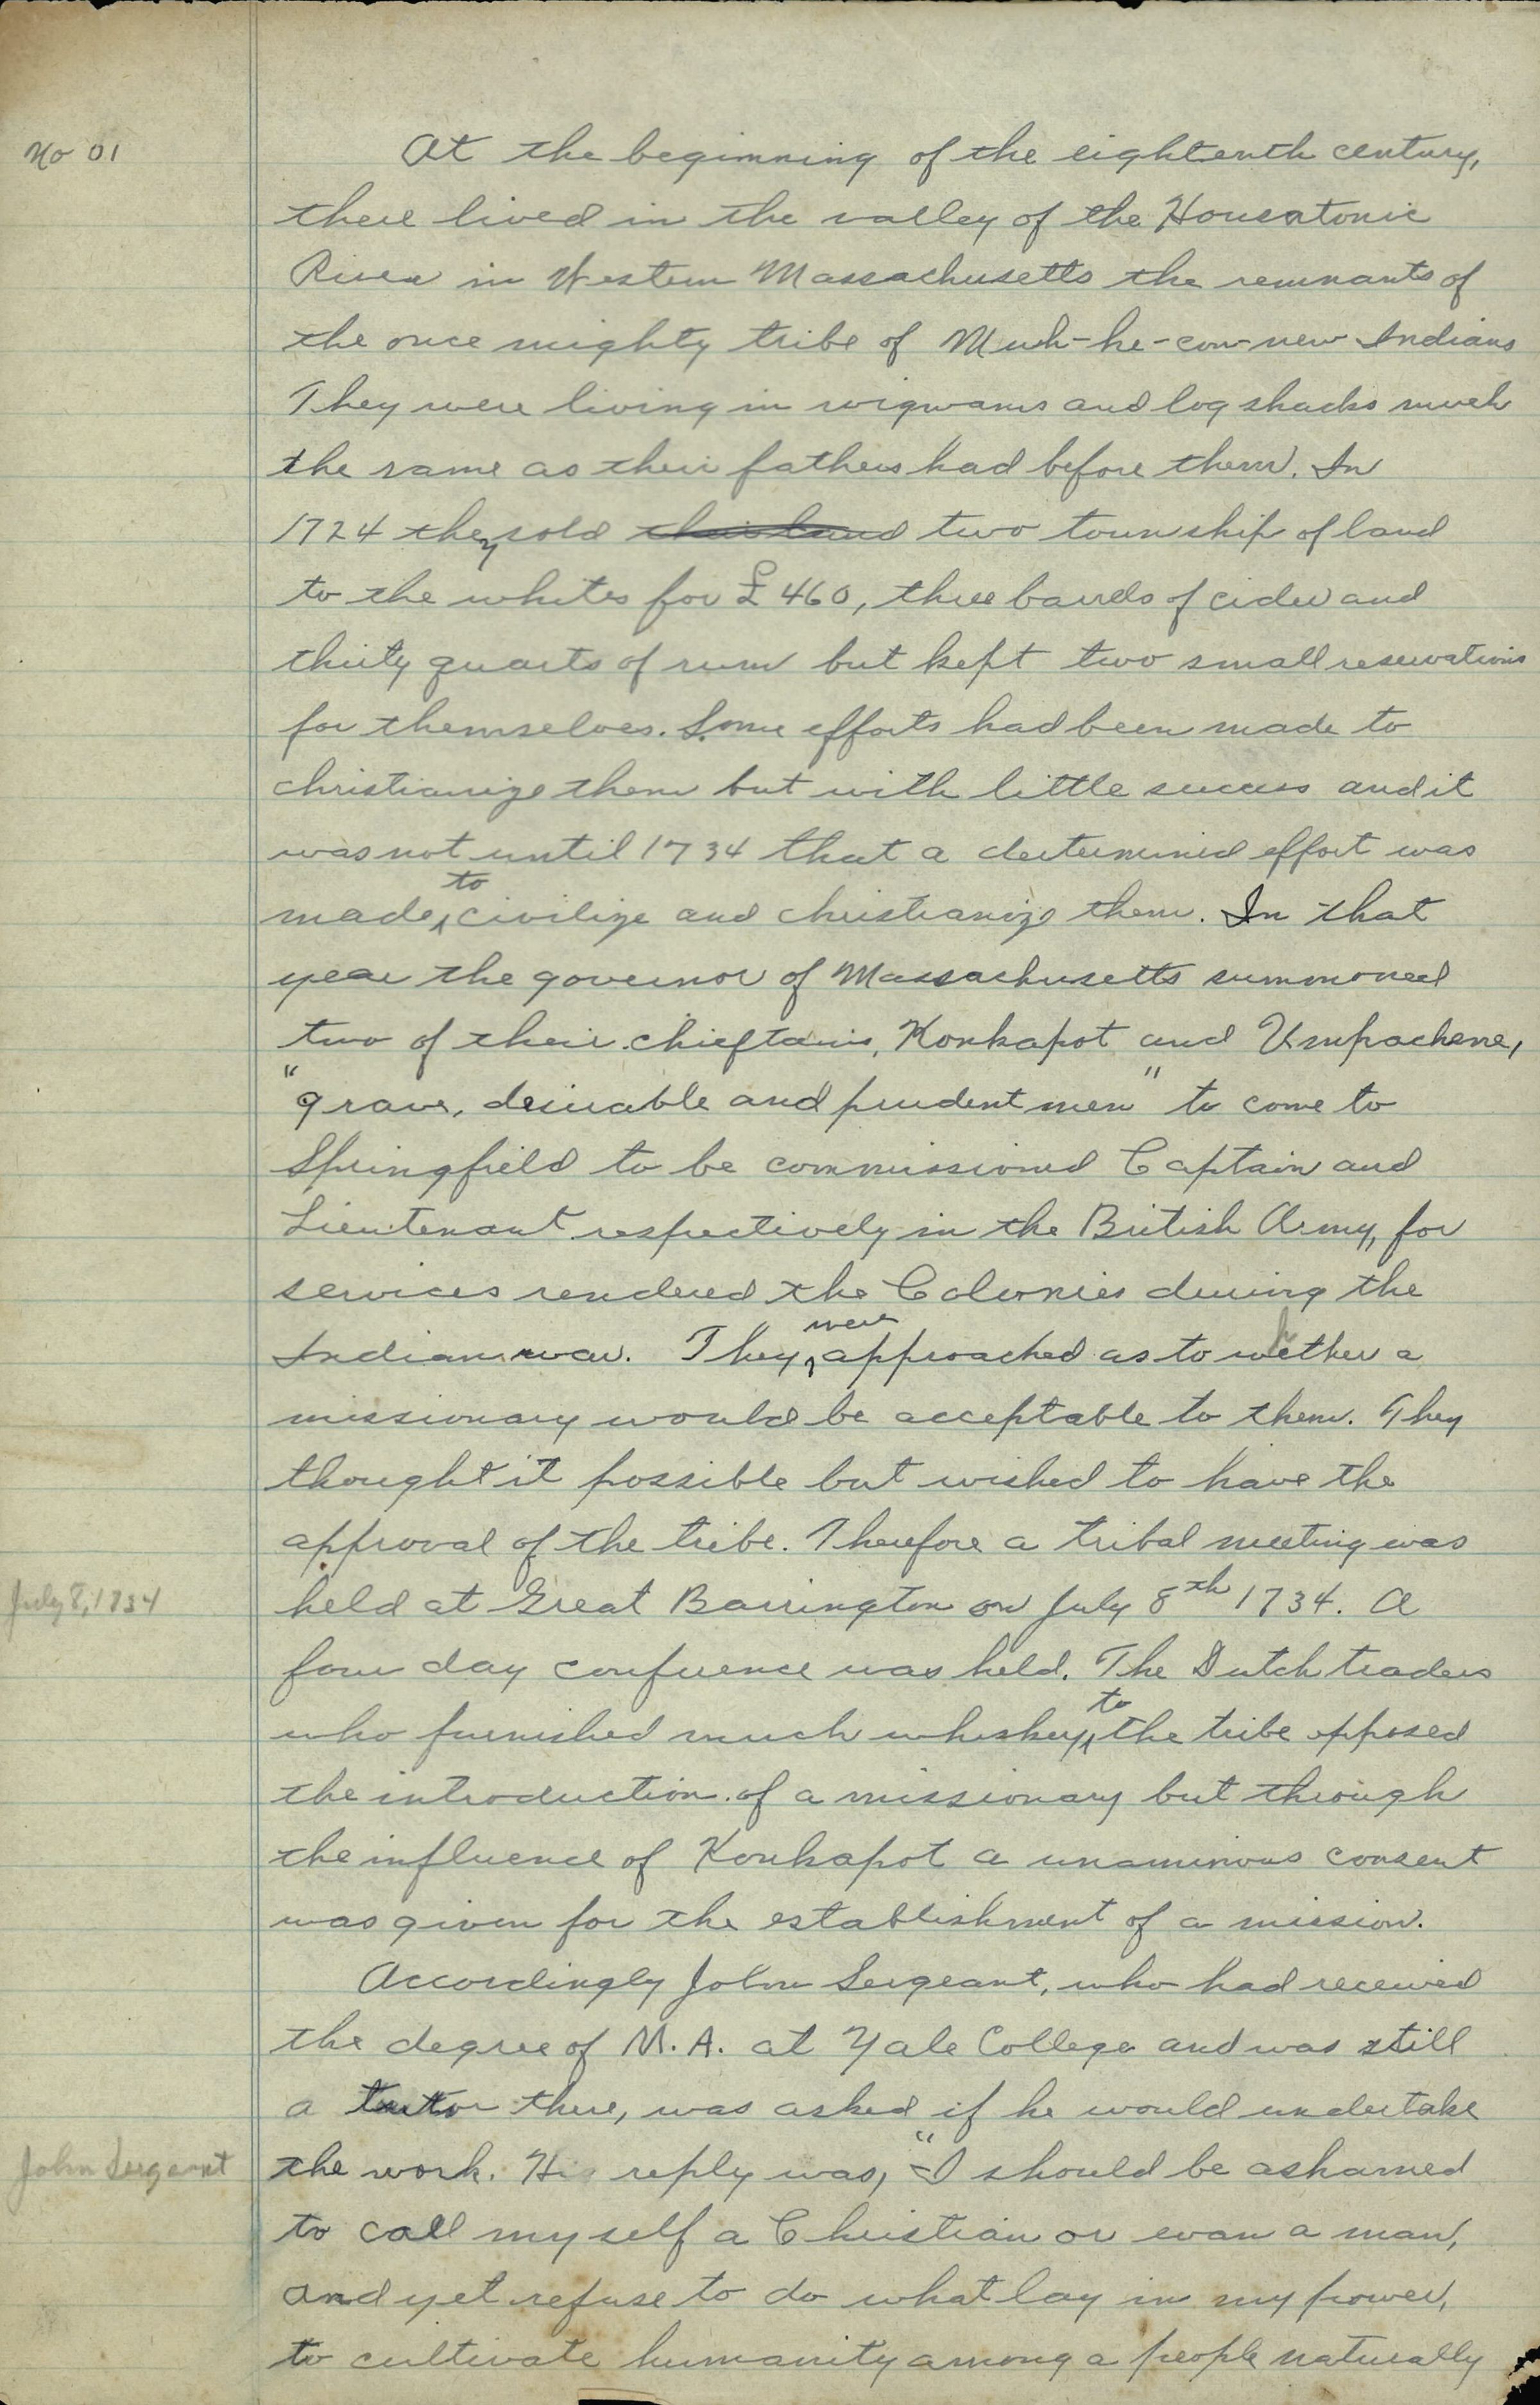 No 01
At the beginning of the eightenth century,
there lived in the valley of the Housatonic
River in Western Massachusetts the remnants of
the once mighty tribe of Muh-he-con-new Indians
They were living in wigwams and log shacks much
the same as their fathers had before them. In
1724 they sold their land two township of land
to the whites for £460, three barrels of cider and
thirty quarts of rum but kept two small reservations
for themselves. Some efforts had been made to
christianize them but with little success and it
was not until 1734 that a determined effort was
made to civilize and christianize them. In that
year the governor of Massachusetts summoned
two of their chieftains, Konkapot and Umpachene,
"grave, desirable and prudent men" to come to
Springfield to be commissioned Captain and
Lieutenant respectively in the British Army, for
services rendered the Colonies during the
Indian war. They were approached as to whether a
missionary would be acceptable to them. They
thought it possible but wished to have the
approval of the tribe. Therefore a tribal meeting was
July 8, 1734
held at Great Barrington on July 8th 1734. A
four day conference was held. The Dutch traders
who furnished much whiskey to the tribe opposed
the introduction of a missionary but through
the influence of Konkapot a unaminous consent
was given for the establishment of a mission.
Accordingly John Sergeant, who had received
the degree of M.A. at Yale College and was still
a tutor there, was asked if he would undertake
John Sergeant
the work. His reply was, "I should be ashamed
to call myself a Christian or evan a man,
and yet refuse to do what lay in my power,
to cultivate humanity among a people naturally